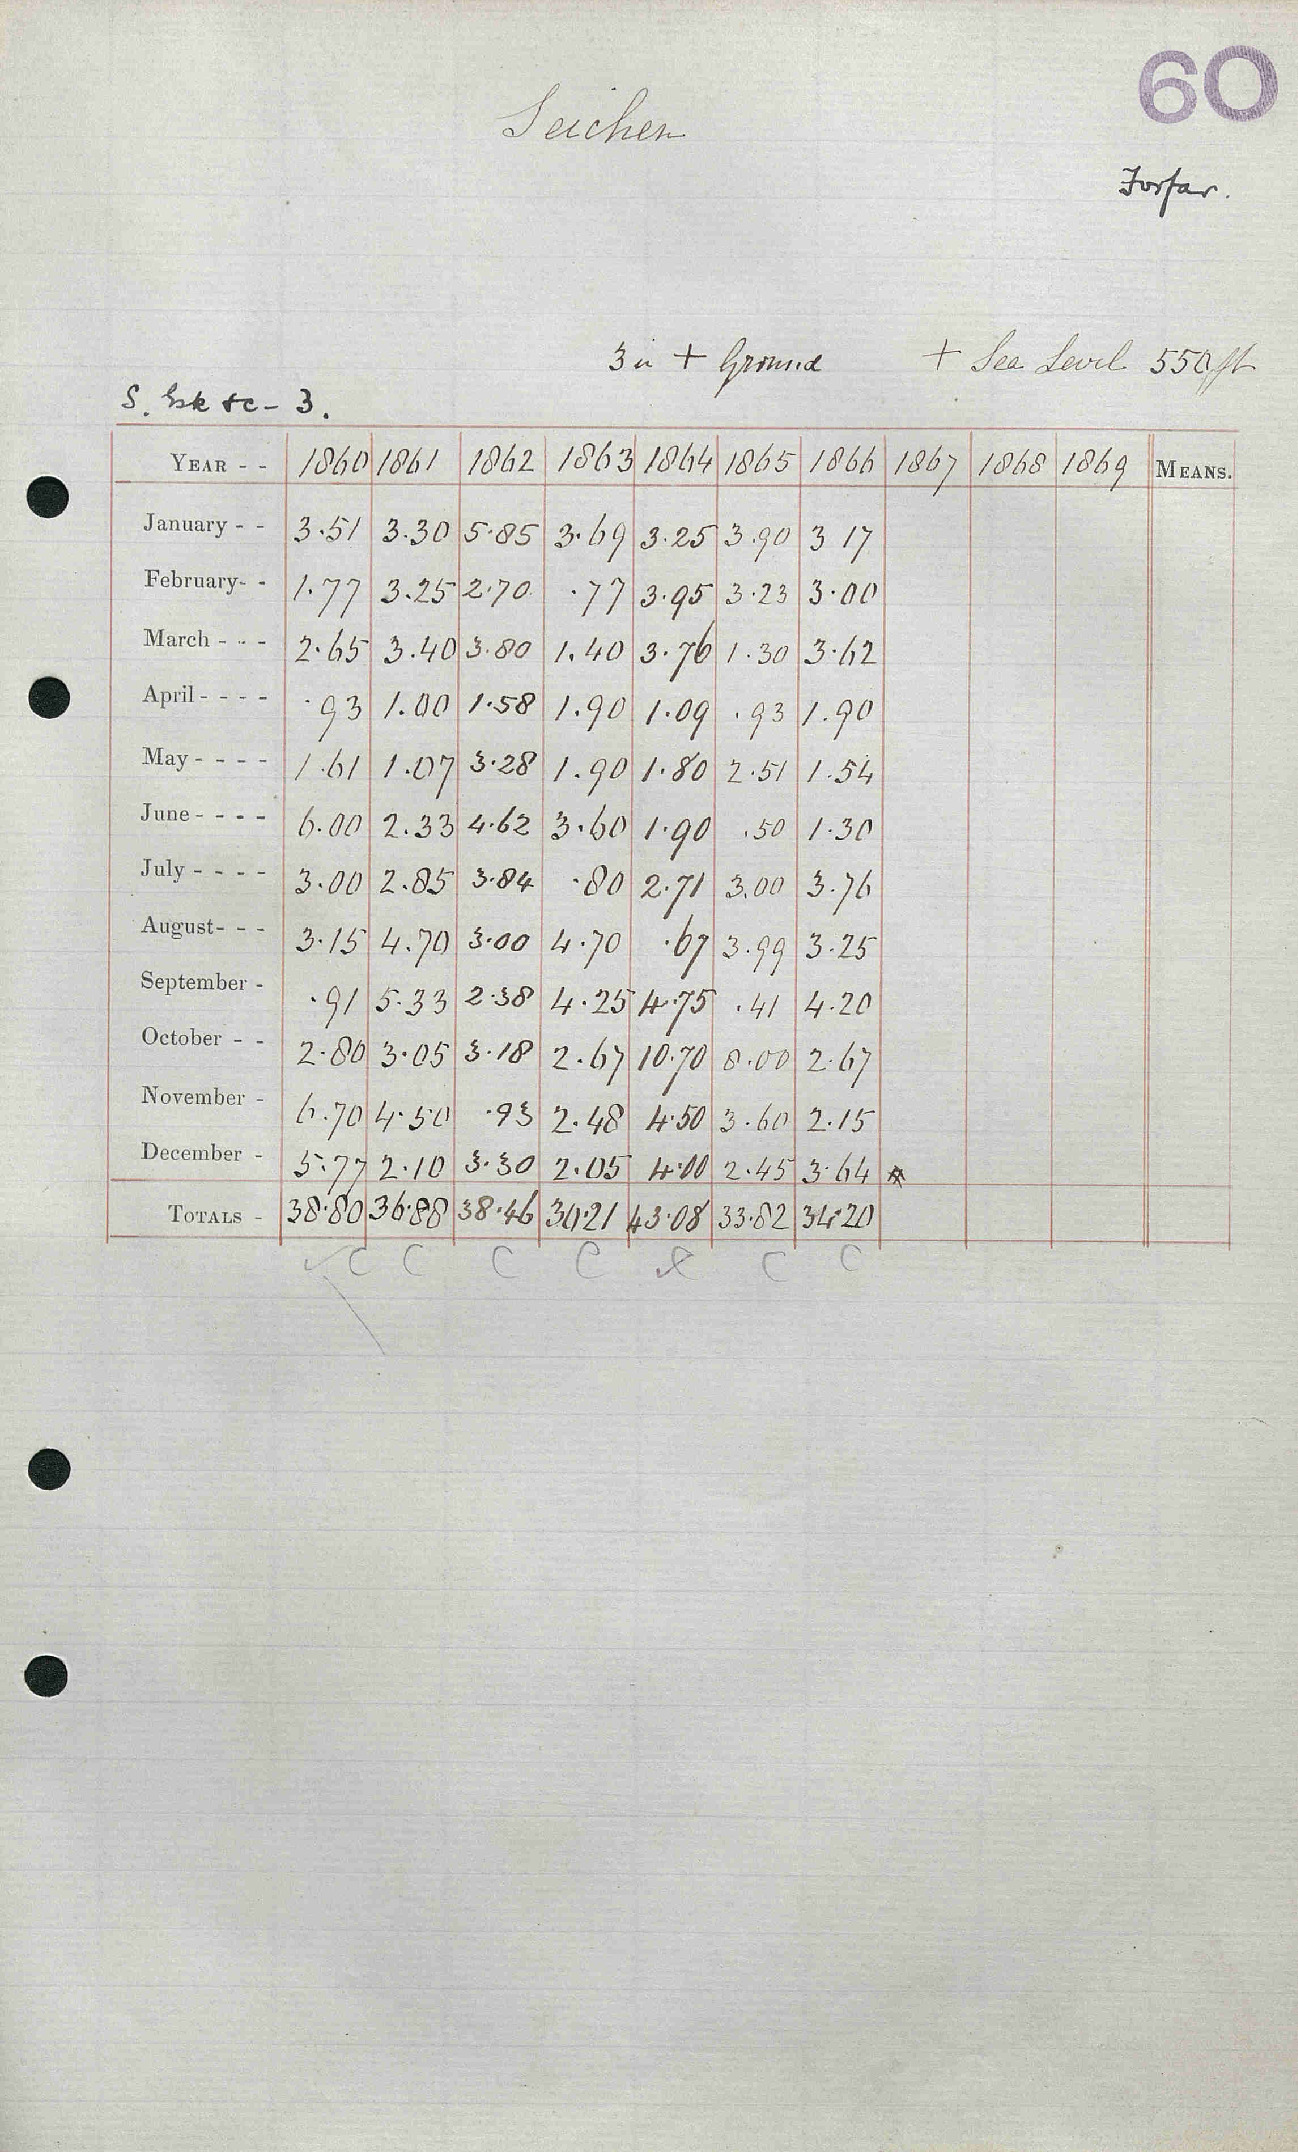 60
Seichen
Forfar.
3 in + Ground + Sea Level 550 ft
S. Esk &c - 3.
YEAR - - 1860 1861 1862 1863 1864 1865 1866 1867 1868 1869 MEANS.
January - - 3.51 3.30 5.85 3.69 3.25 3.90 3 17
February- - 1.77 3.25 2.70 .77 3.95 3.23 3.00
March - - - 2.65 3.40 3.80 1.40 3.76 1.30 3.62
April - - - - .93 1.00 1.58 1.90 1.09 .93 1.90
May - - - - 1.61 1.07 3.28 1.90 1.80 2.51 1.54
June - - - - 6.00 2.33 4.62 3.60 1.90 .50 1.30
July - - - - 3.00 2.85 3.84 .80 2.71 3.00 3.76
August- - - 3.15 4.70 3.00 4.70 .67 3.99 3.25
September - .91 5.33 2.38 4.25 4.75 .41 4.20
October - - 2.80 3.05 3.18 2.67 10.70 8.00 2.67
November - 6.70 4.50 .93 2.48 4.50 3.60 2.15
December - 5.77 2.10 3.30 2.05 4.00 2.45 3.64 *
TOTALS - 38.80 36.88 38.46 30.21 43.08 33.82 34.20
C C C C C C